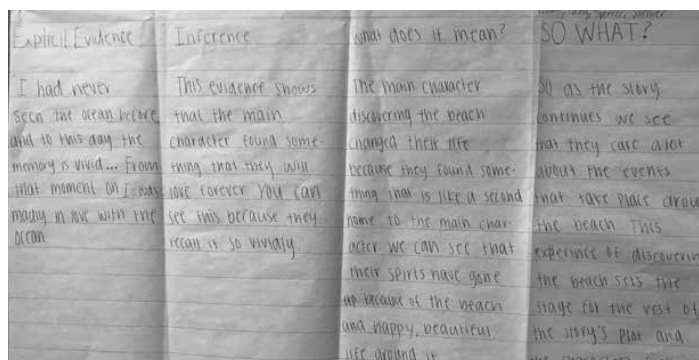 Explicit Evidence
I had never
seen the ocean before
and to this day the
memory is vivid... From
that moment on I was
madly in love with the
ocean
Inference
This evidence shows
that the main
character found some-
thing that they will
love forever You can
see this because they
recall it so vividly
What does it mean?
The main character
discovering the beach
changed their life
because they found some-
thing that is like a second
home to the main char-
acter we can see that
their spirits have gone
up because of the beach
and happy, beautiful
life around it
SO WHAT?
SO as the story
continues we see
that they care alot
about the events
that take place arou
the beach This
experince of discoverin
the beach sets the
stage for the rest of
the story's plot and